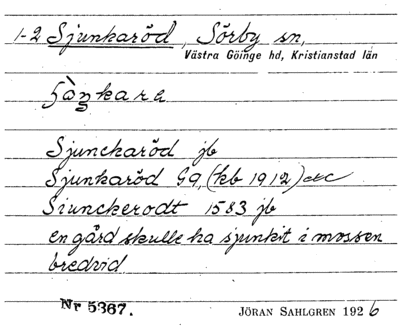 1-2 Sjunkaröd, Sörby sn,
Västra Göinge hd, Kristianstad län
Sjunckaröd jb
Sjunkaröd G9, (kb 1912) etc
Siunckerodt 1583 jb
en gård skulle ha sjunkit i mossen
bredvid
Nr 5367.
JÖRAN SAHLGREN 1926